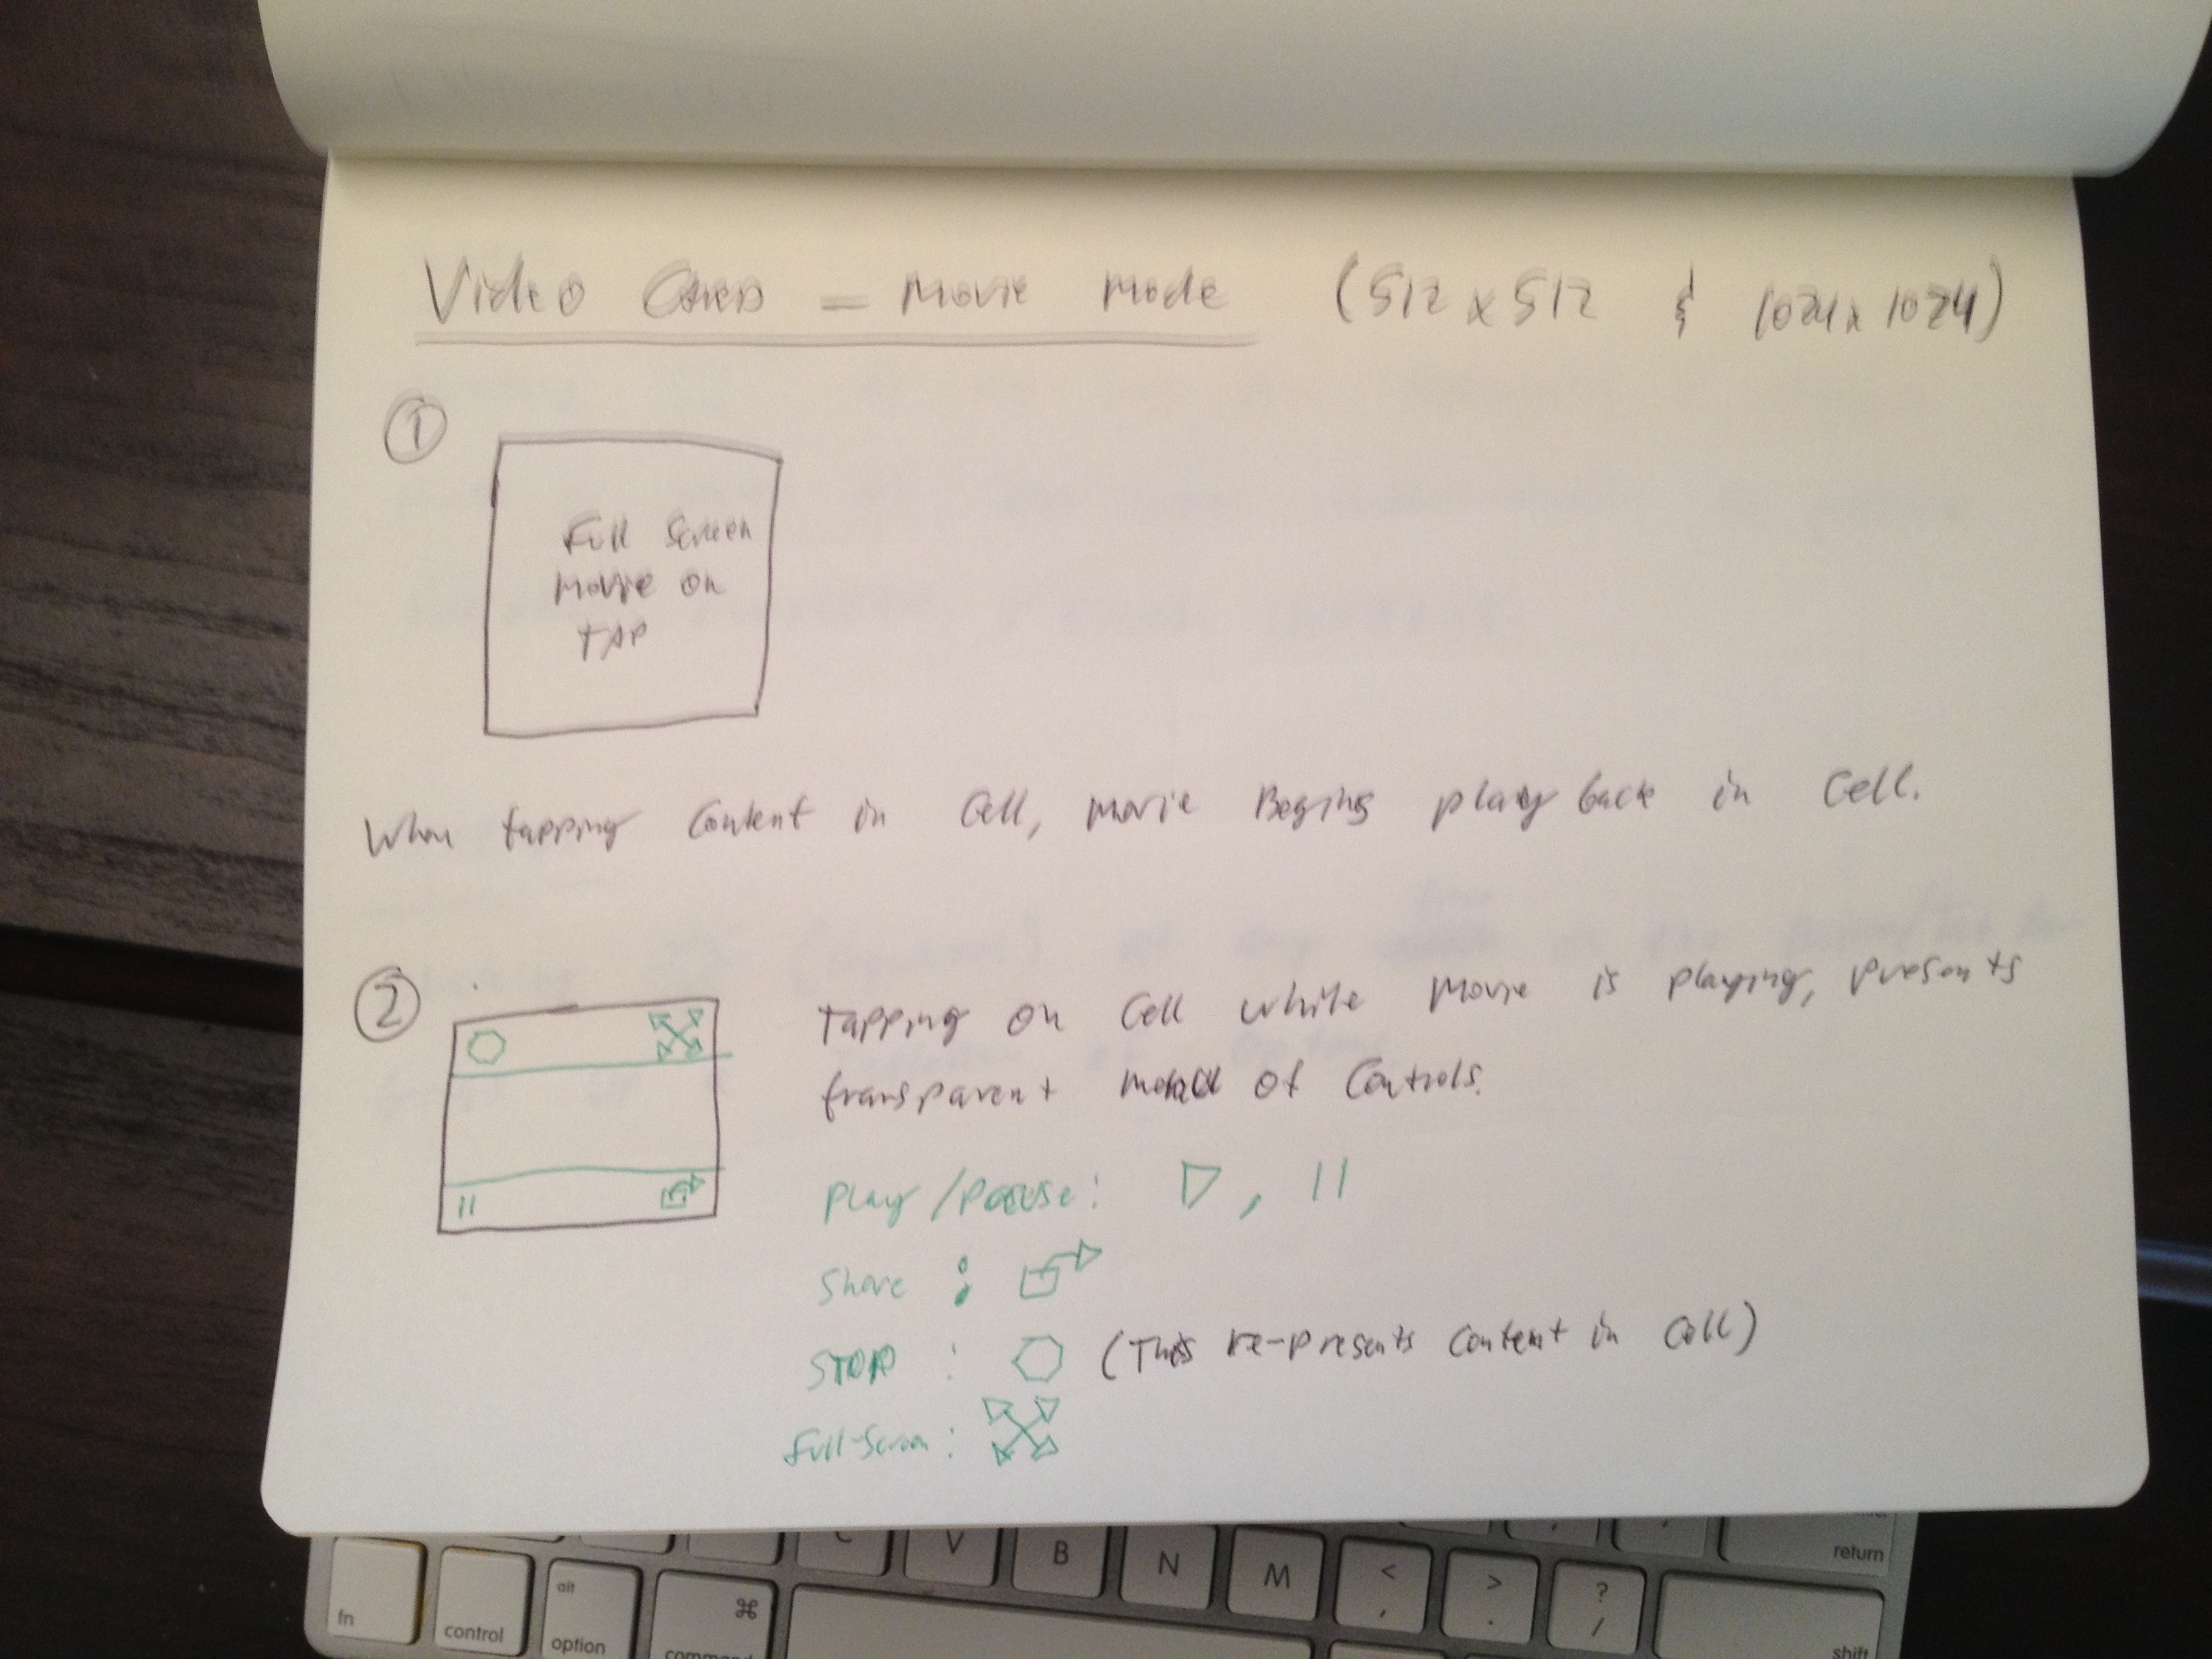 Video = Movie Mode (512 x 512 & 1024 x 1024)
1
Full Screen
Movie on
TAP
When tapping Content in Cell, movie Begins play back in Cell.
2
Tapping on Cell while Movie is playing, presents
transparent of Controls.
Play/Pause: ,
Share :
STOP : (This re-presents Content in Cell)
Full-Screen:
C V B N M < , > . ? / return
fn control alt option ⌘ command shift